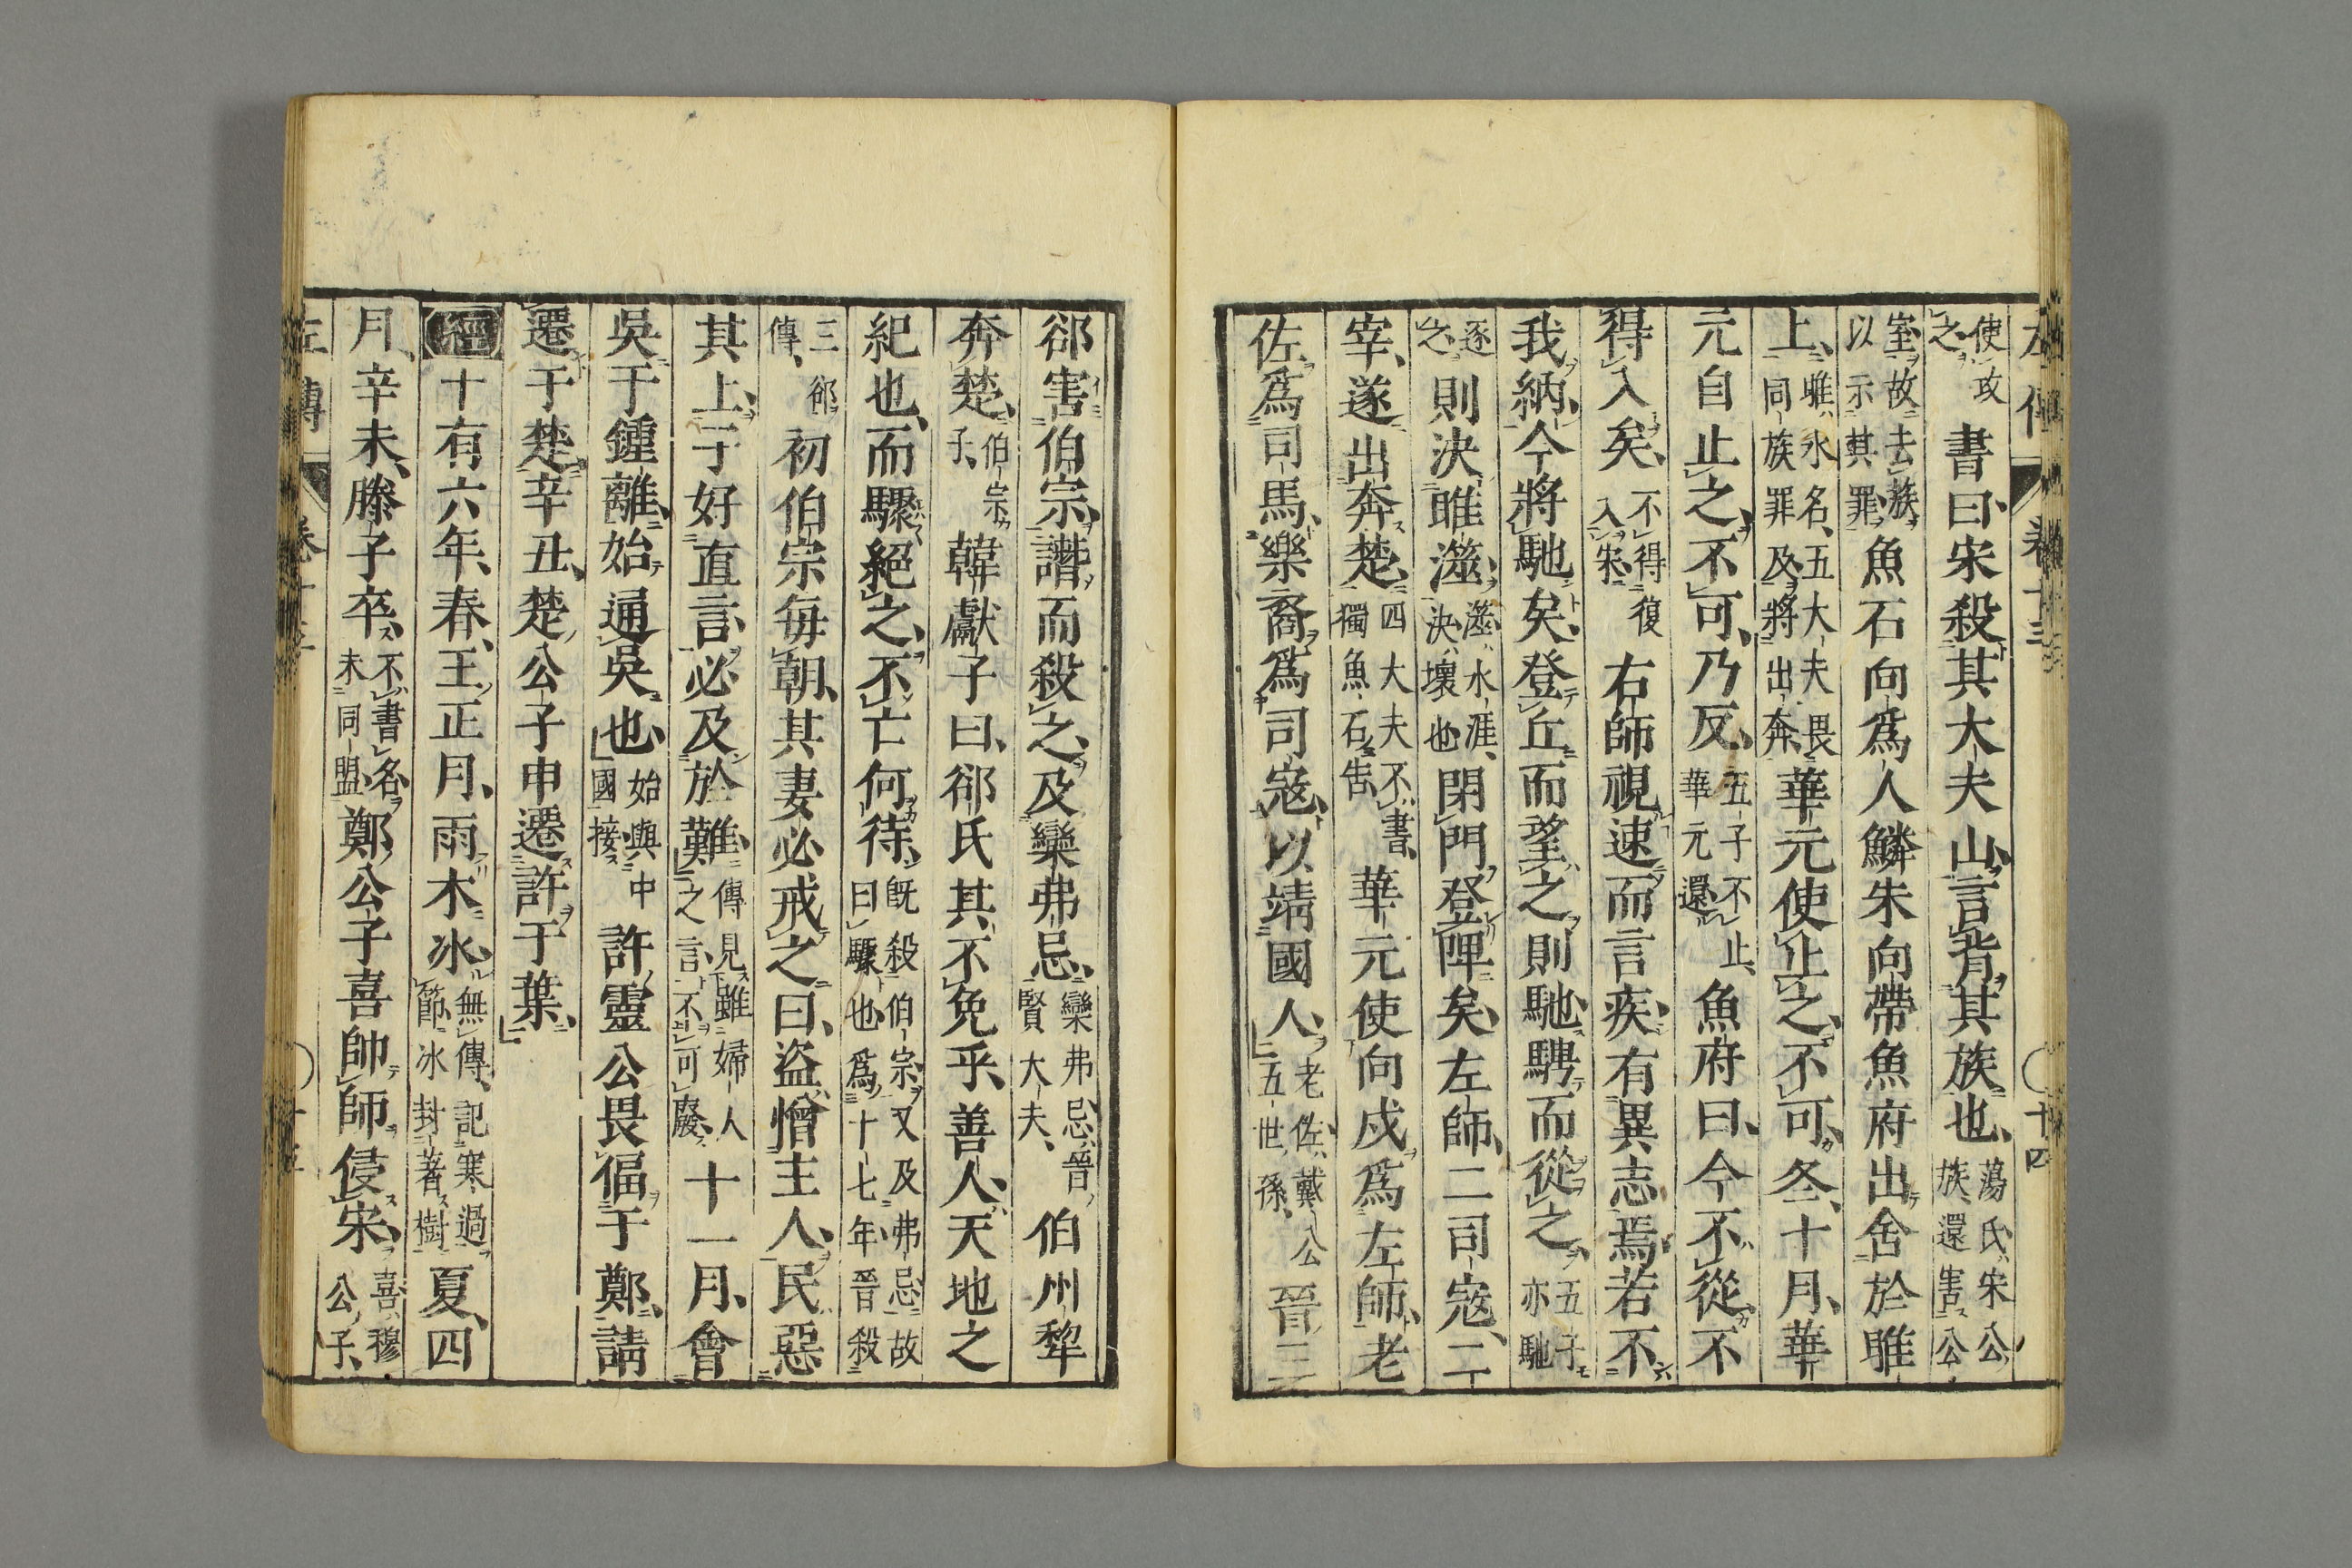 左傳 卷十三 十四
使攻之書曰宋殺其大夫山言背其族也蕩氏宋公族還害公
室故去族以示其罪魚石向爲人鱗朱向帶魚府出舍於睢
上睢水名五大夫畏同族罪及將出奔華元使止之不可冬十月華
元自止之不可乃反五子不止華元還魚府曰今不從不
得入矣不得復入宋右師視速而言疾有異志焉若不
我納今將馳矣登丘而望之則馳騁而從之五子亦馳
逐之則決睢澨澨水涯決壞也閉門登陴矣左師二司寇二
宰遂出奔楚四大夫不書獨魚石告華元使向戌爲左師老
佐爲司馬樂裔爲司寇以靖國人老佐戴公五世孫晉三
郤害伯宗譖而殺之及欒弗忌欒弗忌晉賢大夫伯州犂
奔楚伯宗子韓獻子曰郤氏其不免乎善人天地之
紀也而驟絕之不亡何待既殺伯宗又及弗忌故曰驟也爲十七年晉殺
三郤傳初伯宗每朝其妻必戒之曰盜憎主人民惡
其上子好直言必及於難傳見雖婦人之言不可廢十一月會
吳于鍾離始通吳也始與中國接許靈公畏偪于鄭請
遷于楚辛丑楚公子申遷許于葉
經十有六年春王正月雨木冰無傳記寒過節冰封著樹夏四
月辛未滕子卒不書名未同盟鄭公子喜帥師侵宋喜穆公子
左傳 卷十三